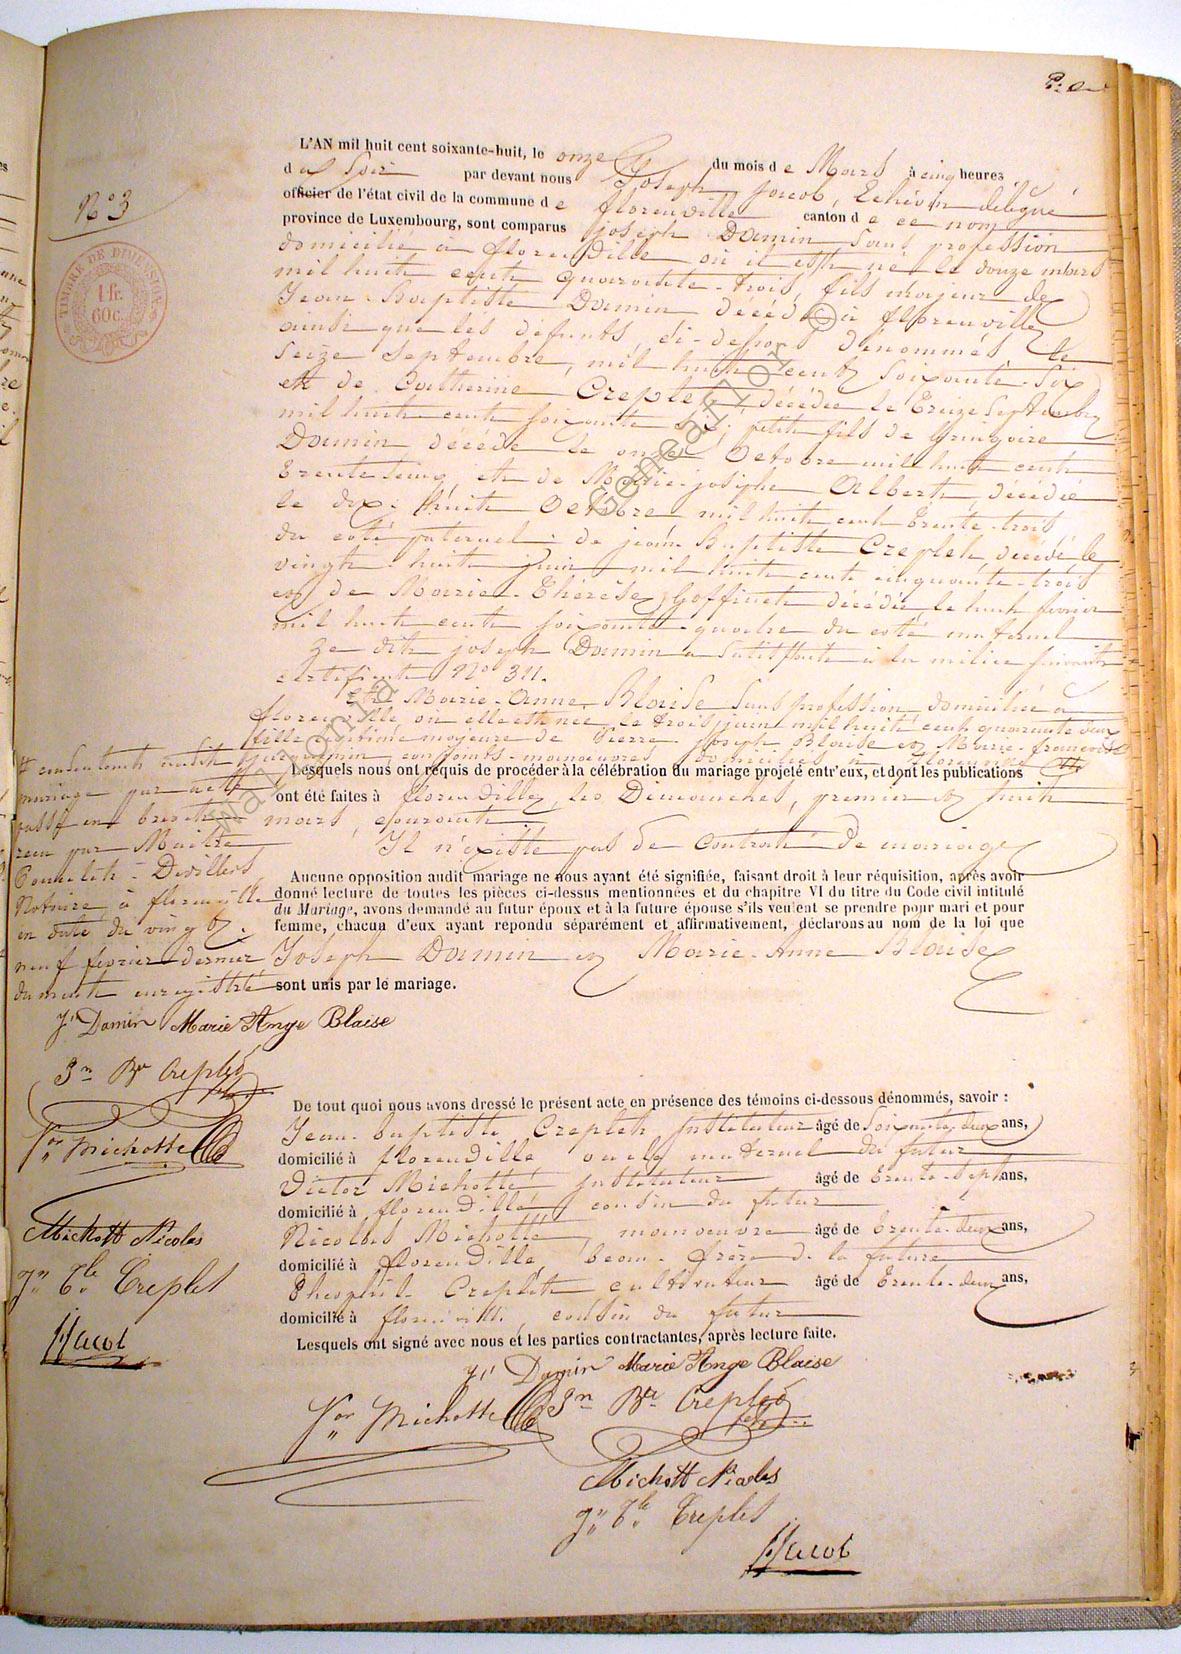 N° 3
TIMBRE DE DIMENSION
1 fr.
60 c.
L'AN mil huit cent soixante-huit, le onze du mois de Mars à cinq heures
du Soir par devant nous Joseph Jacob, Echévin délégué
officier de l'état civil de la commune de florenville canton de ce nom
province de Luxembourg, sont comparus Joseph Damin sans profession
domicilié à florenville où il est né le douze mars
mil huit cent quarante-trois, fils majeur de
Jean-Baptiste Damin décédé à florenville
ainsi que les défunts, ci-après dénommés, le
Seize Septembre, mil huit cent soixante-six
et de Catherine Creplet, décédée le treize Septembre
mil huit cent soixante six; petit fils de Gringoire
Damin décédé le onze Octobre mil huit cent
trente cinq, et de Marie-josèphe Albert, décédée
le dix-huit Octobre mil huit cent trente-trois
du coté paternel; de jean-Baptiste Creplet, décédé le
vingt-huit juin mil huit cent cinquante-trois
et de Marie-Thérèse Goffinet décédée le huit février
mil huit cent soixante-quatre du coté maternel
Le dit joseph Damin a satisfait à la milice suivant
certificat N° 311.
Et Marie-Anne Blaise sans profession domiciliée à
florenville où elle est née le trois juin mil huit cent quarante deux
fille légitime majeure de Pierre-Joseph Blaise et Marie-françoise
conjoints-manoeuvres domiciliés à florenville
Lesquels nous ont requis de procéder à la célébration du mariage projeté entr'eux, et dont les publications
ont été faites à florenville, les Dimanches, premier et huit
mars, courant.
Il n'existe pas de contrat de mariage
Aucune opposition audit mariage ne nous ayant été signifiée, faisant droit à leur réquisition, après avoir
donné lecture de toutes les pièces ci-dessus mentionnées et du chapitre VI du titre du Code civil intitulé
du Mariage, avons demandé au futur époux et à la future épouse s'ils veulent se prendre pour mari et pour
femme, chacun d'eux ayant repondu séparément et affirmativement, déclarons au nom de la loi que
Joseph Damin et Marie-Anne Blaise
sont unis par le mariage.
consentants audit
mariage par acte
passé en brevet
reçu par Maître
Devillers
Notaire à florenville
en date du vingt
neuf février dernier
dument enregistré
Jh Damin Marie Ange Blaise
Jn Bte Creplet
Vor Michotte
Michott Nicolas
Creplet
J Jacob
De tout quoi nous avons dressé le présent acte en présence des témoins ci-dessous dénommés, savoir :
Jean-baptiste Creplet, Instituteur âgé de Soixante-deux ans,
domicilié à florenville oncle maternel du futur
Victor Michotte Instituteur âgé de trente-sept ans,
domicilié à florenville, cousin du futur
Nicolas Michotte, manoeuvre âgé de trente-deux ans,
domicilié à florenville, beau-frère de la future
Théophile Creplet cultivateur âgé de trente-deux ans,
domicilié à florenville, cousin du futur
Lesquels ont signé avec nous et les parties contractantes, après lecture faite.
Jh Damin Marie Ange Blaise
Vor Michotte Jn Bte Creplet
Michott Nicolas
Creplet
J Jacob
Wallonia © GeneaFlor